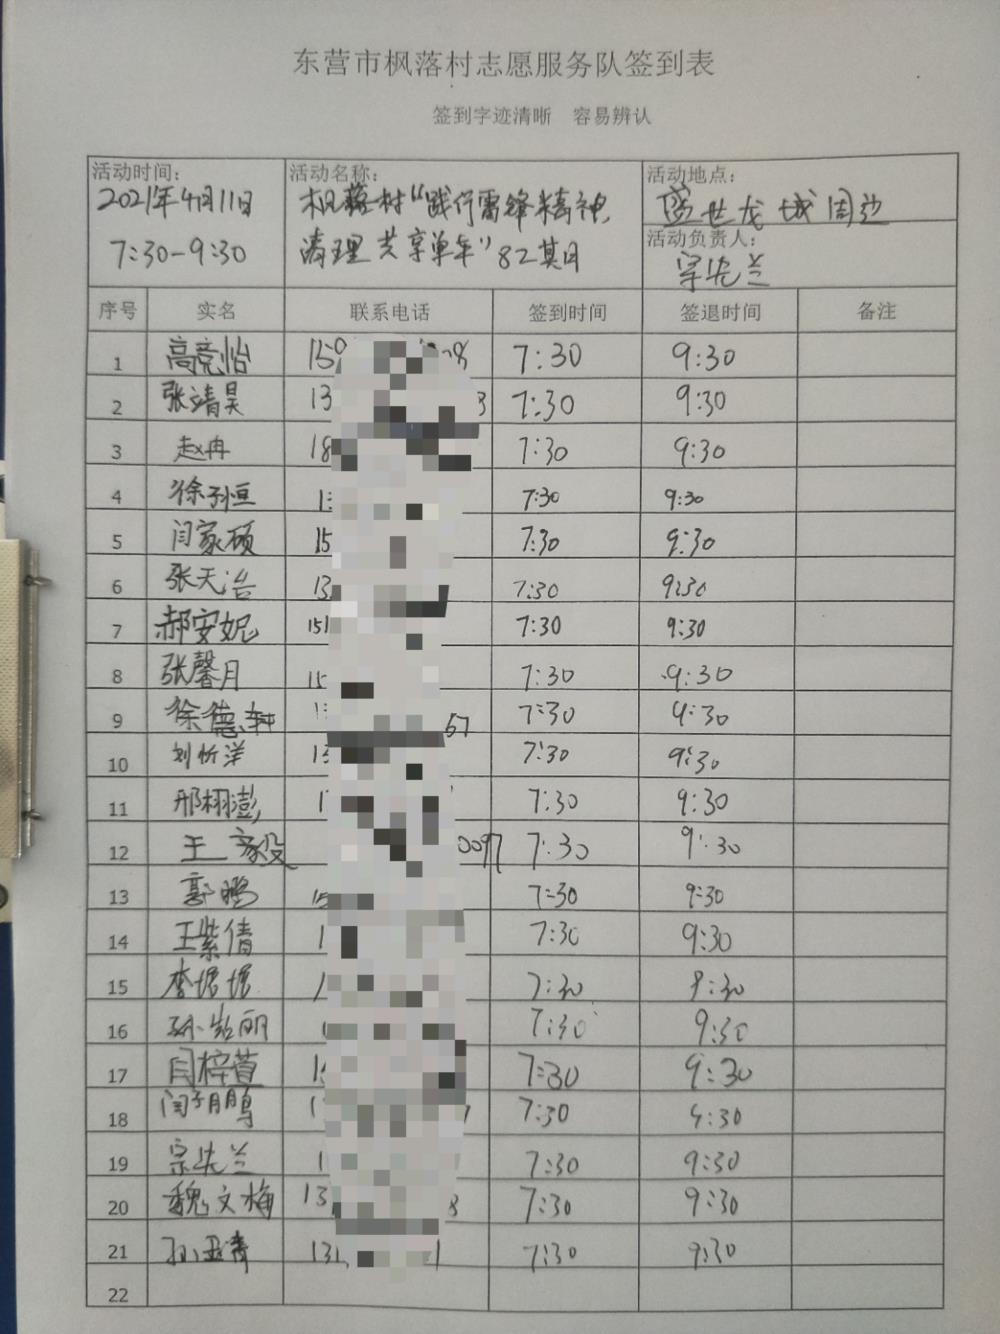 东营市枫落村志愿服务队签到表
签到字迹清晰 容易辨认
活动时间: 活动名称: 活动地点:
2021年4月11日 枫落村“践行雷锋精神, 盛世龙城周边
活动负责人:
7:30-9:30 清理共享单车”82期 宗先兰
序号 实名 联系电话 签到时间 签退时间 备注
1 高竞怡 7:30 9:30
2 张靖昊 13 7:30 9:30
3 赵冉 18 7:30 9:30
4 徐子恒 7:30 9:30
5 闫家硕 15 7:30 9:30
6 张天治 13 7:30 9:30
7 郝安妮 151 7:30 9:30
8 张馨月 15 7:30 9:30
9 徐德轩 57 7:30 9:30
10 刘忻洋 13 7:30 9:30
11 邢栩澎 7:30 9:30
12 王 0097 7:30 9:30
13 郭鹏 15 7:30 9:30
14 王紫倩 1 7:30 9:30
15 李 7:30 9:30
16 孙 丽 7:30 9:30
17 闫梓萱 7:30 9:30
18 闫 鹏 7:30 9:30
19 宗先兰 1 7:30 9:30
20 魏文梅 13 8 7:30 9:30
21 孙 131 1 7:30 9:30
22